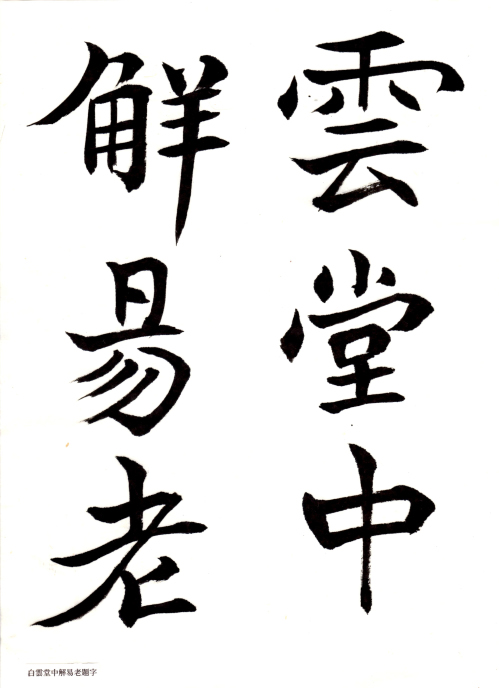 雲堂中
觧昜老
白雲堂中解易老題字